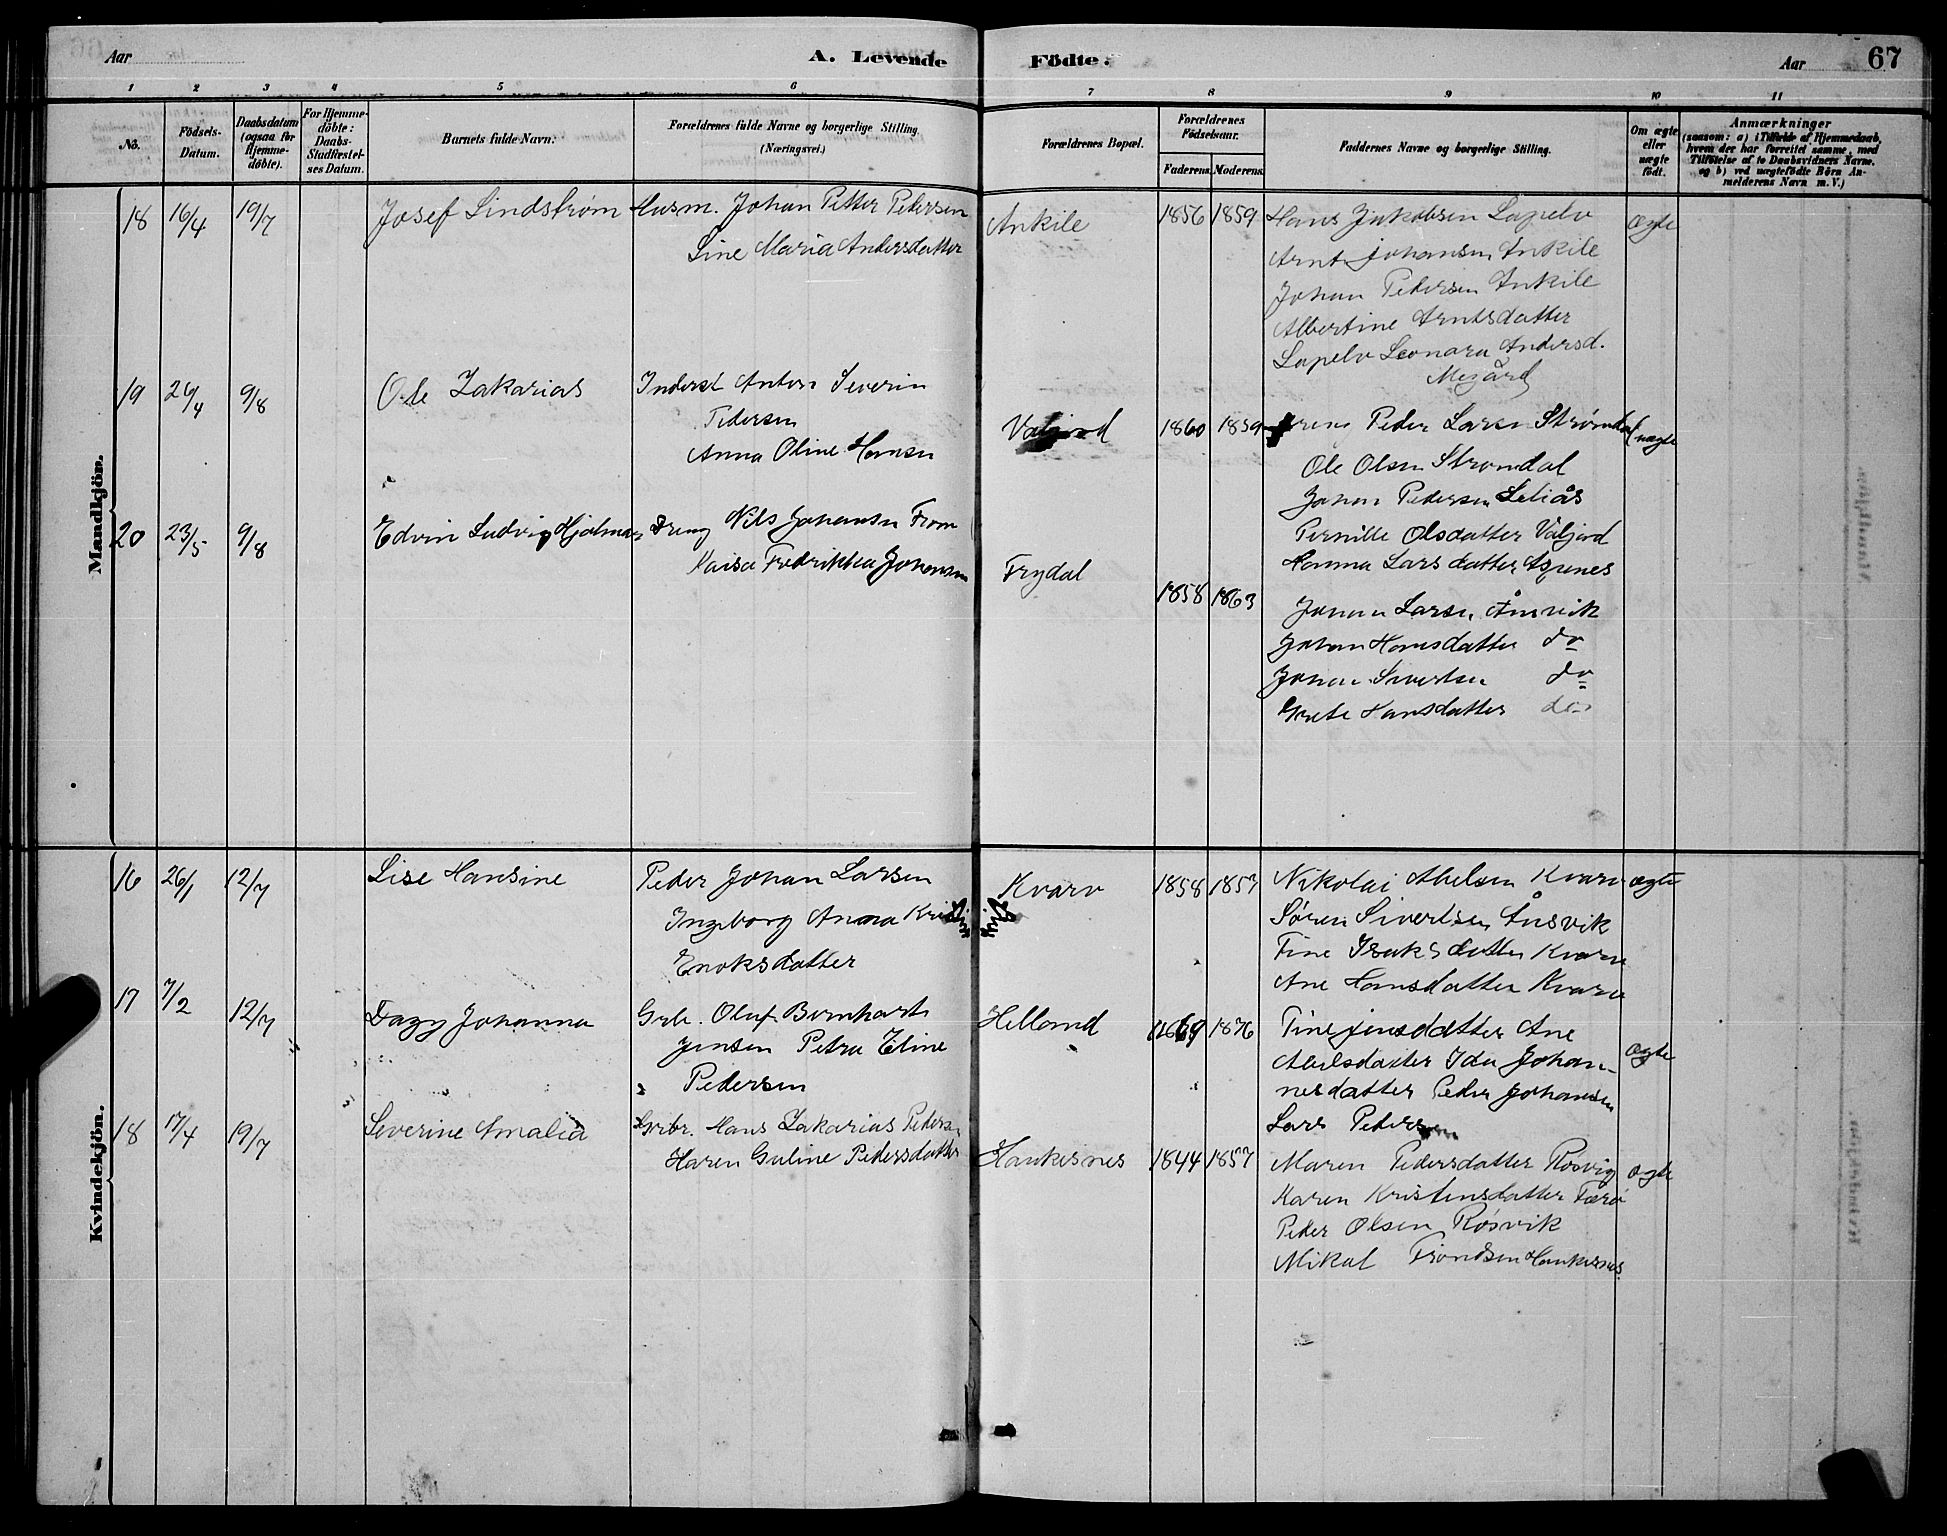 Aar
A. Levende
Födte.
Aar
67
1 2 3 4 5 6 7 8 9 10 11
No.
Födsels-
Datum.
Daabsdatum
(ogsaa for
Hjemme-
döbte).
For Hjemme-
döbte:
Daabs-
Stadfæstel-
ses Datum.
Barnets fulde Navn.
Forældrenes fulde Navne og borgerlige Stilling.
(Næringsvei.)
Forældrenes Bopæl.
Forældrenes
Födselsaar.
Faderens. Moderens.
Faddernes Navne og borgerlige Stilling.
Om ægte
eller
uægte
födt.
Anmærkninger
(saasom: a) i Tilfælde af Hjemmedaab,
hvem der har forrettet samme, med
Tilföielse af to Daabsvidners Navne.
og b) ved uægtefödte Börn An-
melderens Navn m. V.)
Mandkjön.
18 16/4 19/7 Josef Lindstrøm Husm. Johan Petter Pedersen
Line Maria Andersdatter
Ankile 1856 1859 Hans Jakobsen Lapelv ægte
Arnt Johansen Ankile
Johan Pedersen Ankile
Albertine Arntsdatter
Lapelv Leonara Andersd.
Megård
19 26/4 9/8 Ole Zakarias Inderst Anton Severin
Pedersen
Anna Oline Hansen
Valjord 1860 1859 Dreng Peder Larsen Strømdal uægte
Ole Olsen Strømdal
Johan Pedersen Leliås
Pernille Olsdatter Valjord
Hanna Larsdatter Aspenes
20 23/5 9/8 Edvin Ludvig Hjalmar Dreng Nils Johansen From
Kaisa Fredrikka Johansen
Frydal 1858 1863 Johan Larsen Ånsvik
Johan Hansdatter do
Johan Sivertsen do
Grete Hansdatter do
Kvindekjön.
16 26/1 12/7 Lise Hansine Peder Johan Larsen
Ingeborg Anna Kristin
Enoksdatter
Kvarv 1858 1857 Nikolai Abelsen Kvarv ægte
Søren Sivertsen Ånsvik
Tine Isaksdatter Kvarv
Ane Hansdatter Kvarv
17 7/2 12/7 Dagy Johanna Grb. Oluf Bernhart
Jensen Petra Eline
Pedersen
Helland 1869 1876 Tine Jensdatter Ane
Abelsdatter Ida Johan-
nesdatter Peder Johansen
Lars Pedersen
ægte
18 17/4 19/7 Severine Amalia Grbr. Hans Zakarias Peders.
Karen Guline Pedersdatter
Hankesnes 1844 1857 Maren Pedersdatter Rosvig ægte
Karen Kristensdatter Færø
Peder Olsen Røsvik
Mikal Trondsen Hankesnes